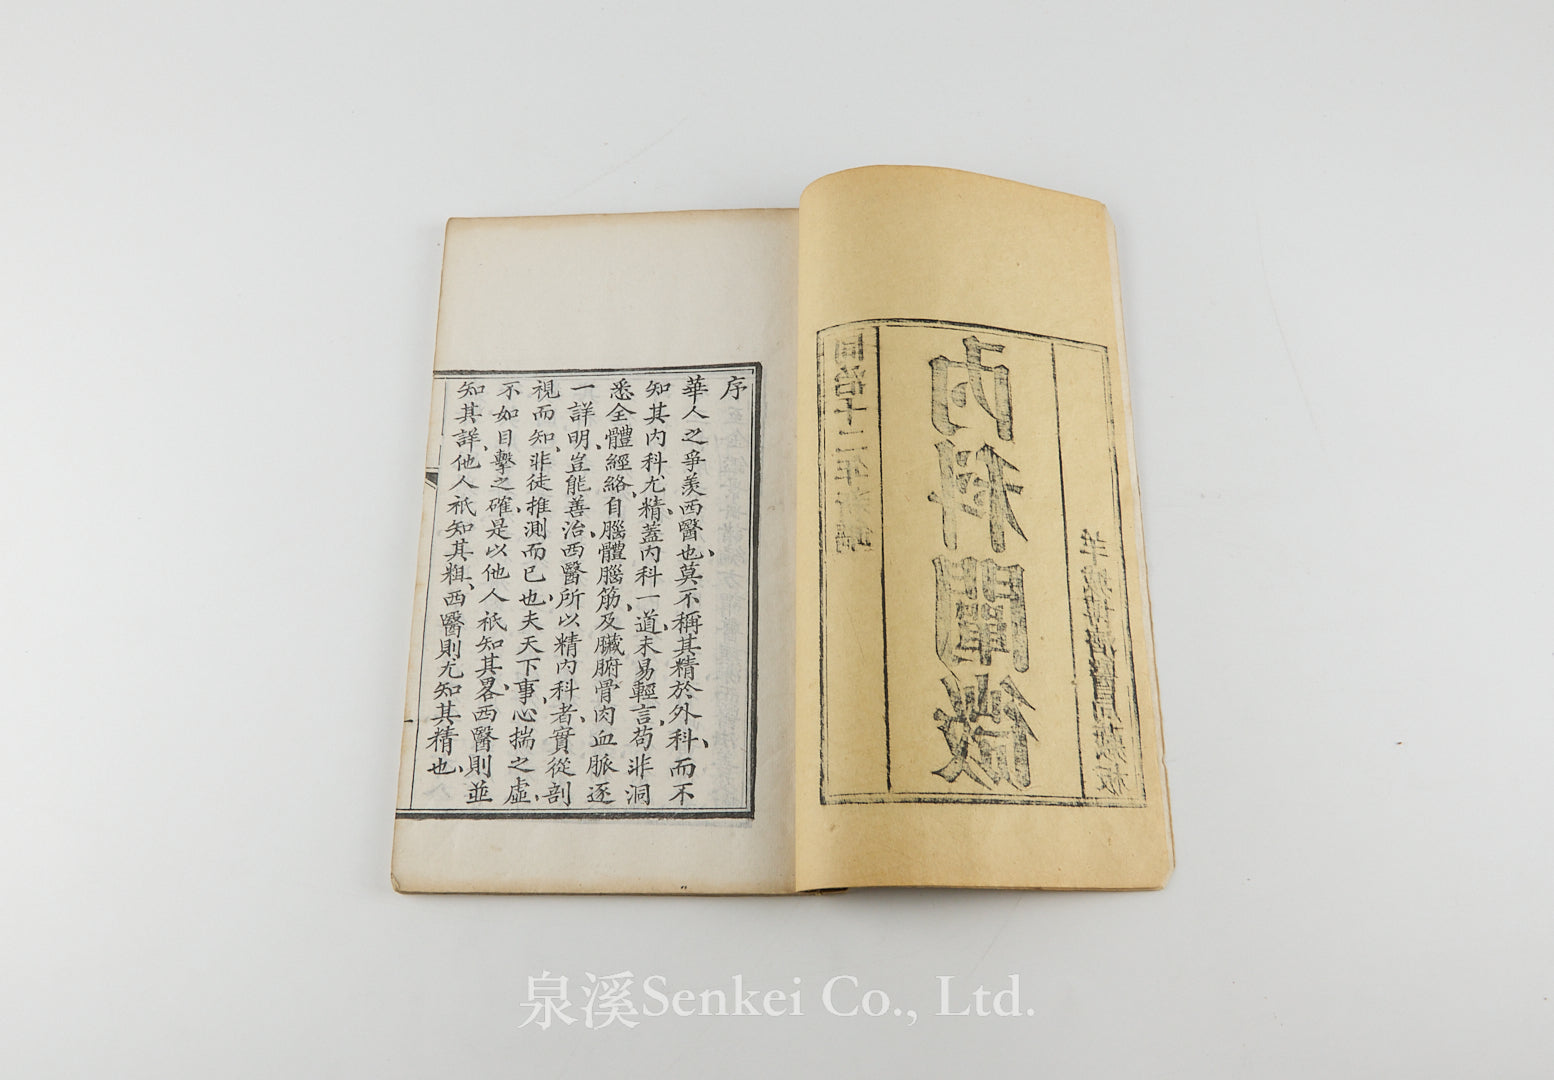 同治十二年新鐫
內科闡微
羊城博濟醫局藏板
序
華人之爭羨西醫也、莫不稱其精於外科、而不
知其內科尤精、蓋內科一道、未易輕言、苟非洞
悉全體經絡、自腦體腦筋、及臟腑骨肉血脈逐
一詳明、豈能善治、西醫所以精內科者、實從剖
視而知、非徒推測而已也、夫天下事、心揣之虛、
不如目擊之確、是以他人祇知其畧、西醫則並
知其詳、他人祇知其粗、西醫則尤知其精也、
泉溪Senkei Co., Ltd.